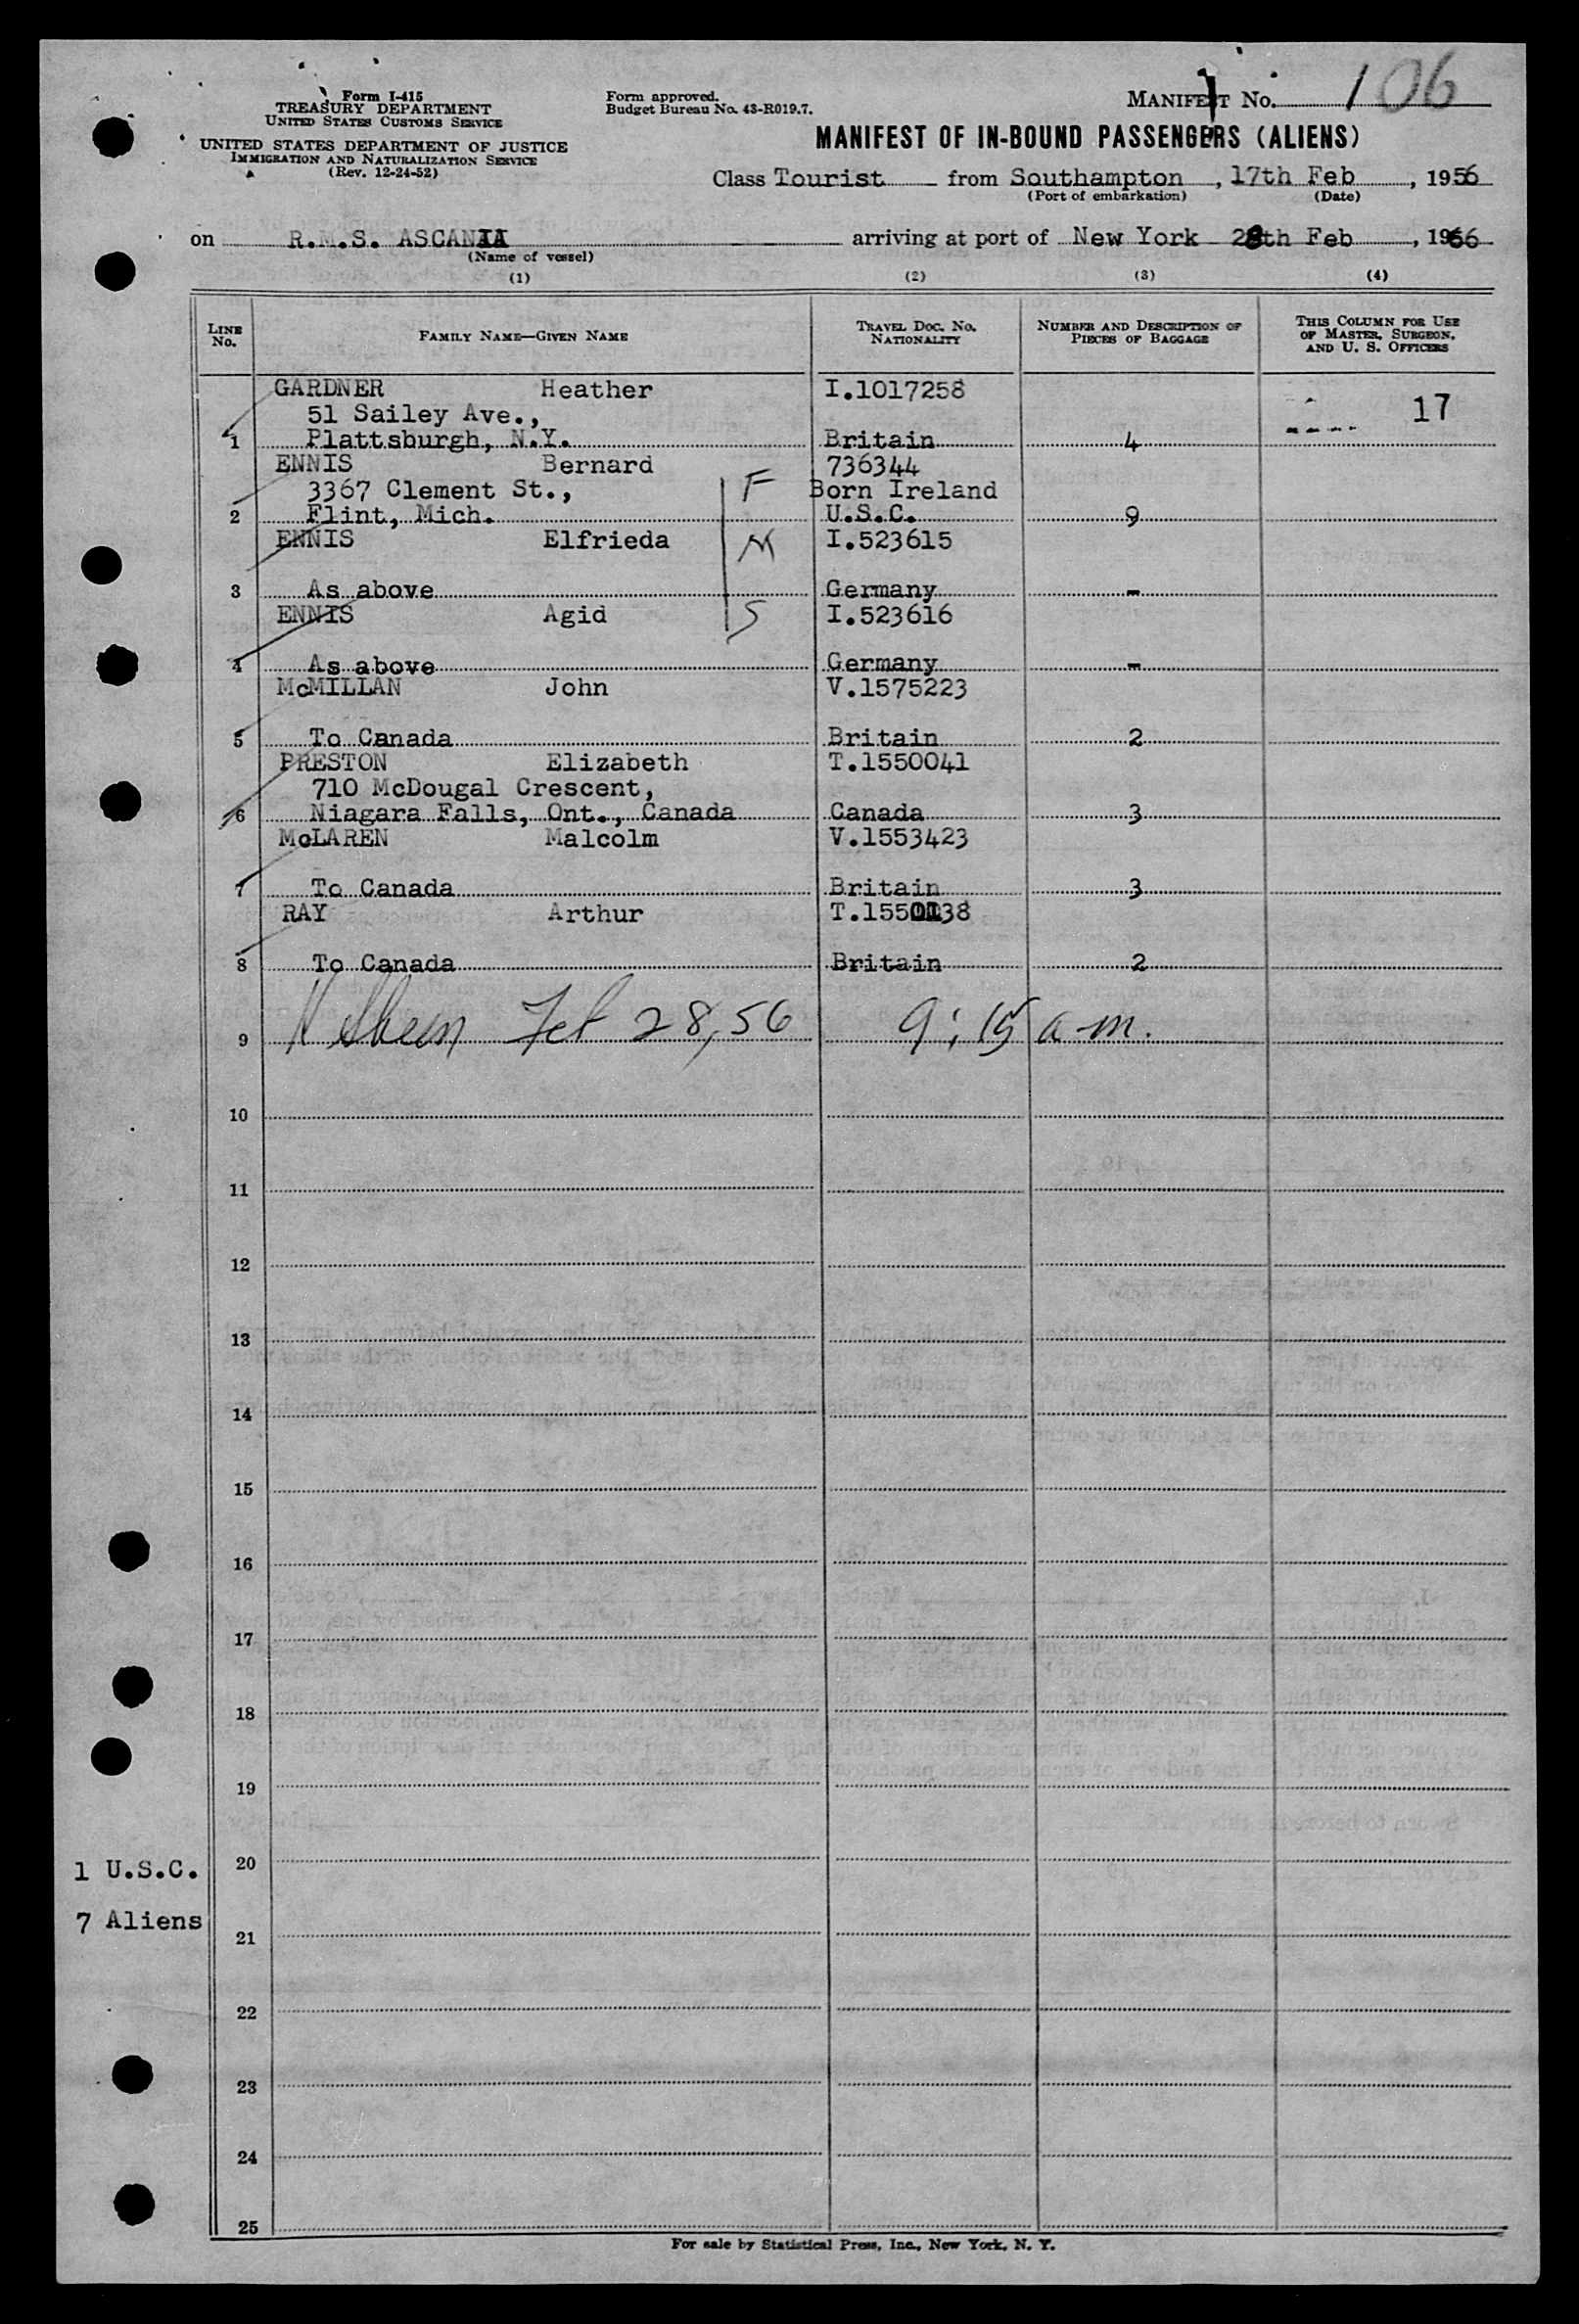 Form I-415
TREASURY DEPARTMENT
UNITED STATES CUSTOMS SERVICE
UNITED STATES DEPARTMENT OF JUSTICE
IMMIGRATION AND NATURALIZATION SERVICE
(Rev. 12-24-52)
Form approved.
Budget Bureau No. 43-R019.7.
MANIFEST No. 106
MANIFEST OF IN-BOUND PASSENGERS (ALIENS)
Class Tourist from Southampton, 17th Feb, 1956
(Port of embarkation) (Date)
on R.M.S. ASCANIA arriving at port of New York 28th Feb, 1956
(Name of vessel)
(1) (2) (3) (4)
LINE No. FAMILY NAME—GIVEN NAME TRAVEL DOC. No. NATIONALITY NUMBER AND DESCRIPTION OF PIECES OF BAGGAGE THIS COLUMN FOR USE OF MASTER, SURGEON, AND U. S. OFFICERS
GARDNER Heather I.1017258 17
51 Sailey Ave.,
1 Plattsburgh, N.Y. Britain 4
ENNIS Bernard 736344
3367 Clement St., F Born Ireland
2 Flint, Mich. U.S.C. 9
ENNIS Elfrieda M I.523615
3 As above Germany -
ENNIS Agid S I.523616
4 As above Germany -
McMILLAN John V.1575223
5 To Canada Britain 2
PRESTON Elizabeth T.1550041
710 McDougal Crescent,
6 Niagara Falls, Ont., Canada Canada 3
McLAREN Malcolm V.1553423
7 To Canada Britain 3
RAY Arthur
8 To Canada Britain 2
9 Feb 28, 56 9:15 a.m.
10
11
12
13
14
15
16
17
18
19
1 U.S.C. 20
7 Aliens 21
22
23
24
25
For sale by Statistical Press, Inc., New York, N. Y.